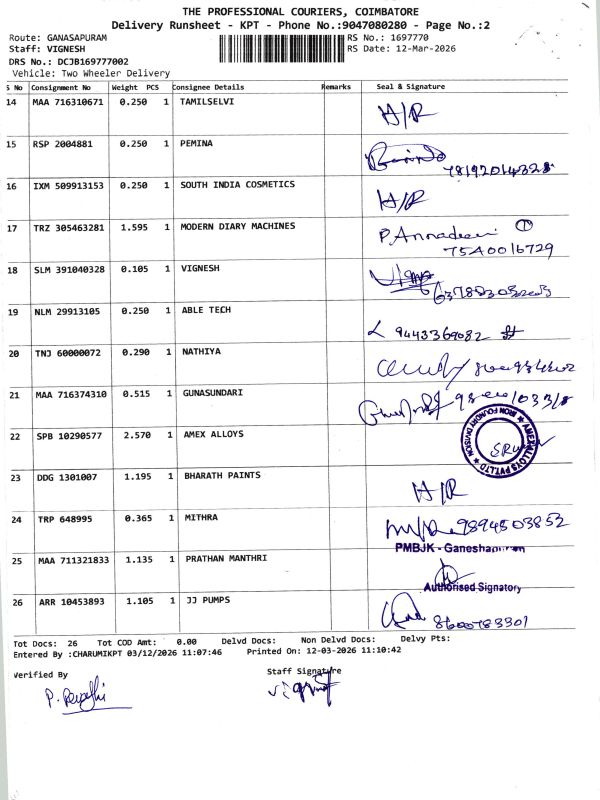 THE PROFESSIONAL COURIERS, COIMBATORE
Delivery Runsheet - KPT - Phone No.:9047080280 - Page No.:2
Route: GANASAPURAM
RS No.: 1697770
Staff: VIGNESH
RS Date: 12-Mar-2026
DRS No.: DCJB169777002
Vehicle: Two Wheeler Delivery
S No Consignment No Weight PCS Consignee Details Remarks Seal & Signature
14 MAA 716310671 0.250 1 TAMILSELVI H/R
15 RSP 2004881 0.250 1 PEMINA
16 IXM 509913153 0.250 1 SOUTH INDIA COSMETICS H/R
17 TRZ 305463281 1.595 1 MODERN DIARY MACHINES
18 SLM 391040328 0.105 1 VIGNESH
19 NLM 29913105 0.250 1 ABLE TECH 9443369082
20 TNJ 60000072 0.290 1 NATHIYA
21 MAA 716374310 0.515 1 GUNASUNDARI
22 SPB 10290577 2.570 1 AMEX ALLOYS AMEX ALLOYS PVT.LTD IRON FOUNDRY DIVISION
23 DDG 1301007 1.195 1 BHARATH PAINTS H/R
24 TRP 648995 0.365 1 MITHRA 9894503852
PMBJK - Ganeshapuram
25 MAA 711321833 1.135 1 PRATHAN MANTHRI
Authorised Signatory
26 ARR 10453893 1.105 1 JJ PUMPS 8600783301
Tot Docs: 26 Tot COD Amt: 0.00 Delvd Docs: Non Delvd Docs: Delvy Pts:
Entered By :CHARUMIKPT 03/12/2026 11:07:46 Printed On: 12-03-2026 11:10:42
Verified By
Staff Signatyre